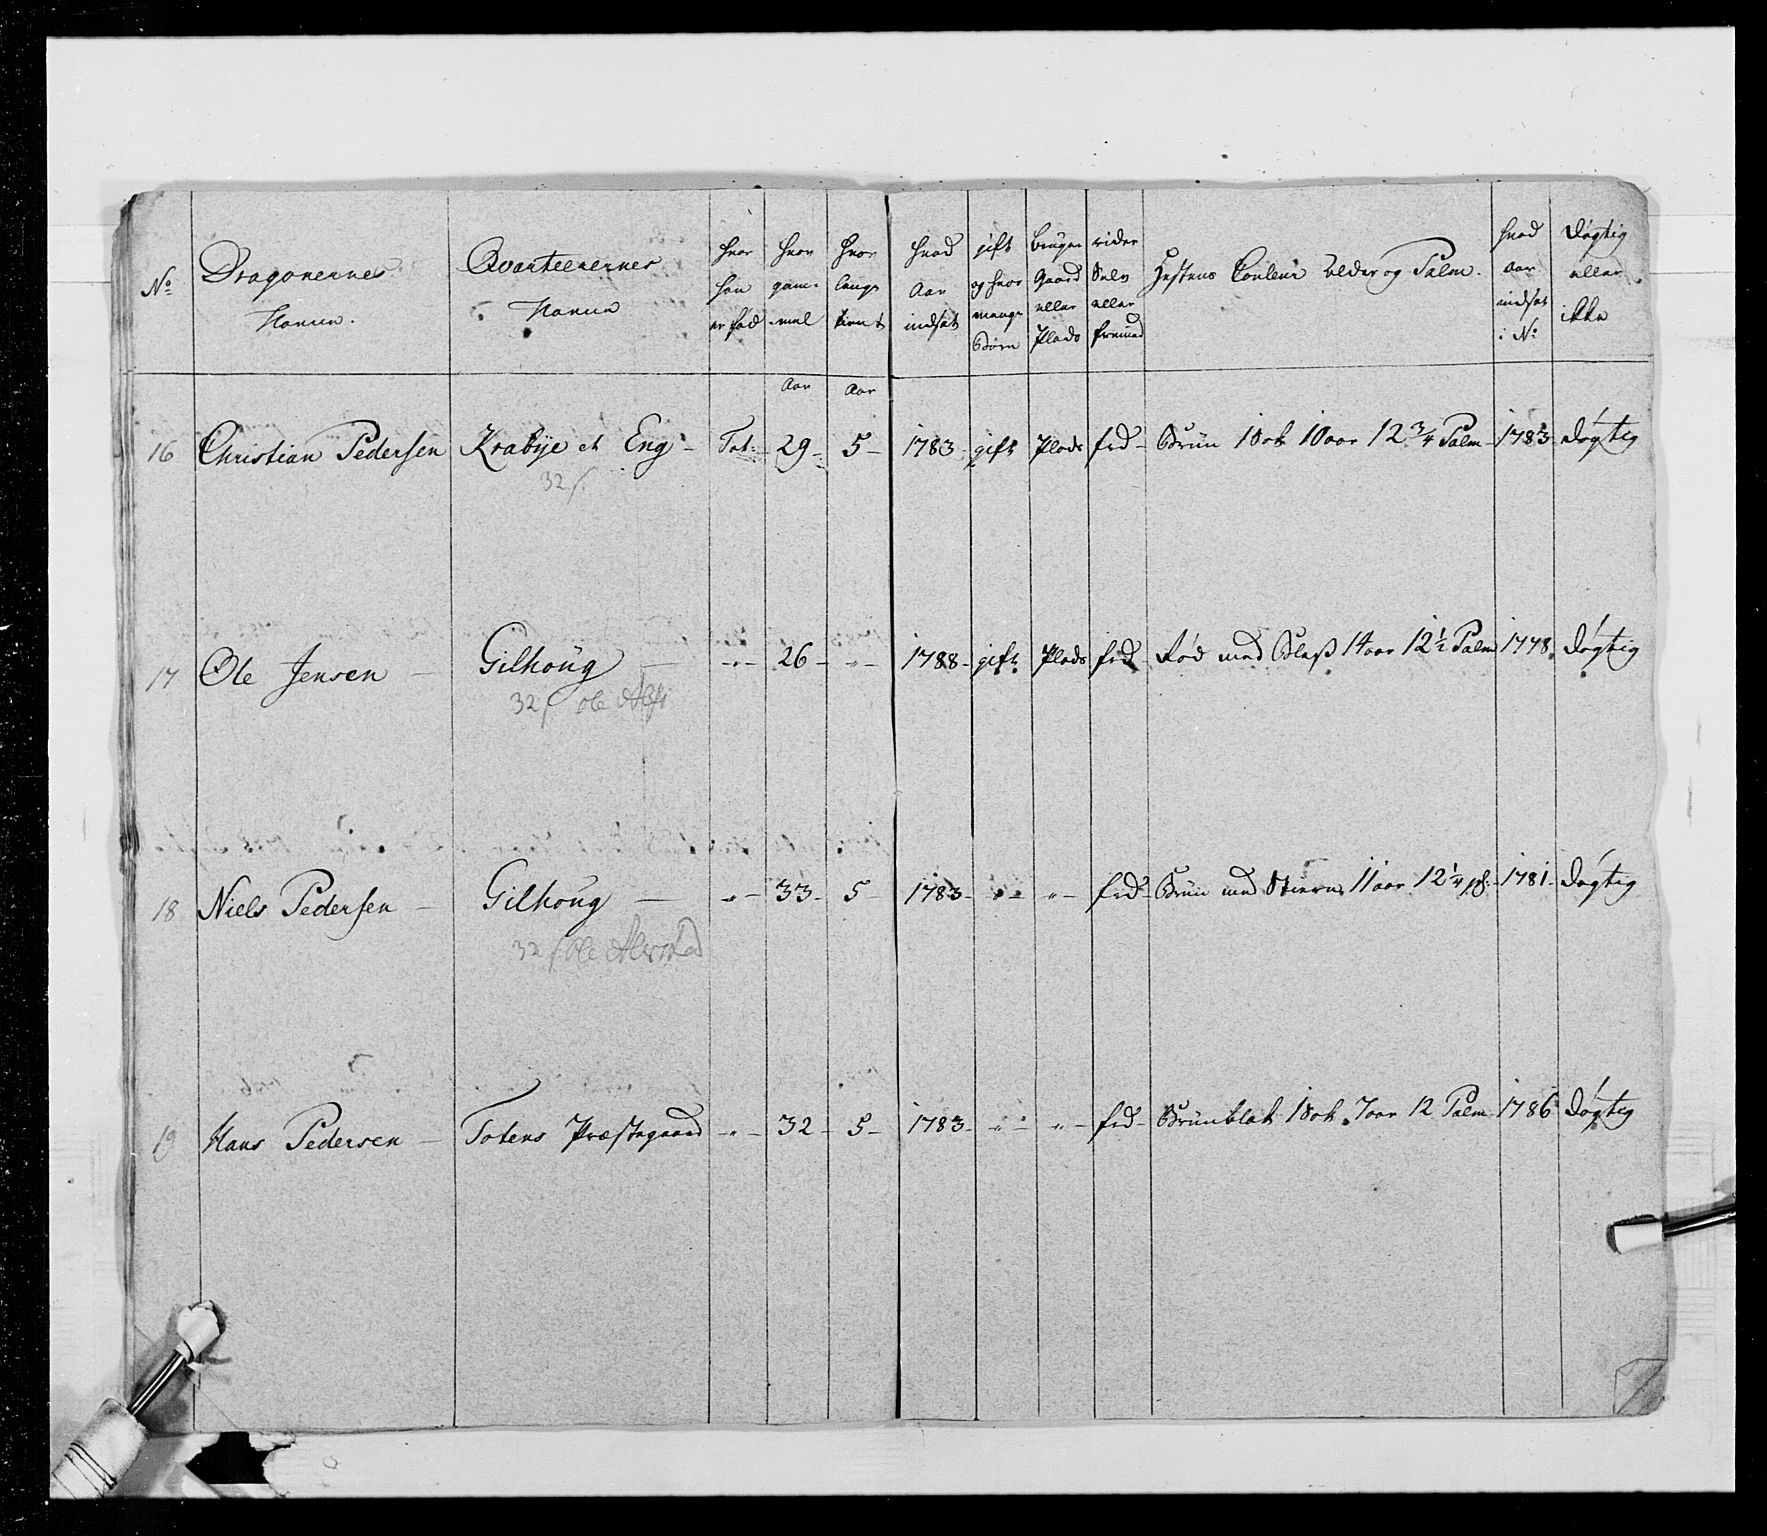 No
Dragonernes Nafne.
Qvarteerernes Nafne
hvor han er fød
hvor gam-mel
hvor længe tient
hvad Aar indsat
gift og hvor mange Børn
bruger Gaard eller Plads
rider Selv eller fremmed
Hestens Couleur alder og Palm.
hvad aar indsat i No
døgtig eller ikke
Aar Aar
16 Christian Pedersen Krabye et Eng - Tot: 29- 5- 1783- gift Plads frd- Brün 18ok 10aar 12 3/4 Palm- 1783- døgtig
32 s.
17 Ole Jensen - Gilhoüg - -"- 26- -"- 1788- gift Plads frd- Rød med Blaß 14aar 12 1/2 Palm 1778 døgtig
32 s Ole
18 Niels Pedersen - Gilhoüg - -"- 33- 5- 1783- -"- -"- frd- Brün med Stierne 11aar 12 1/4 1781- døgtig
32 s Ole
19 Hans Pedersen - Totens Præstegaard -"- 32- 5- 1783- -"- -"- frd- Brünblak 18ok 7aar 12 Palm 1786 døgtig